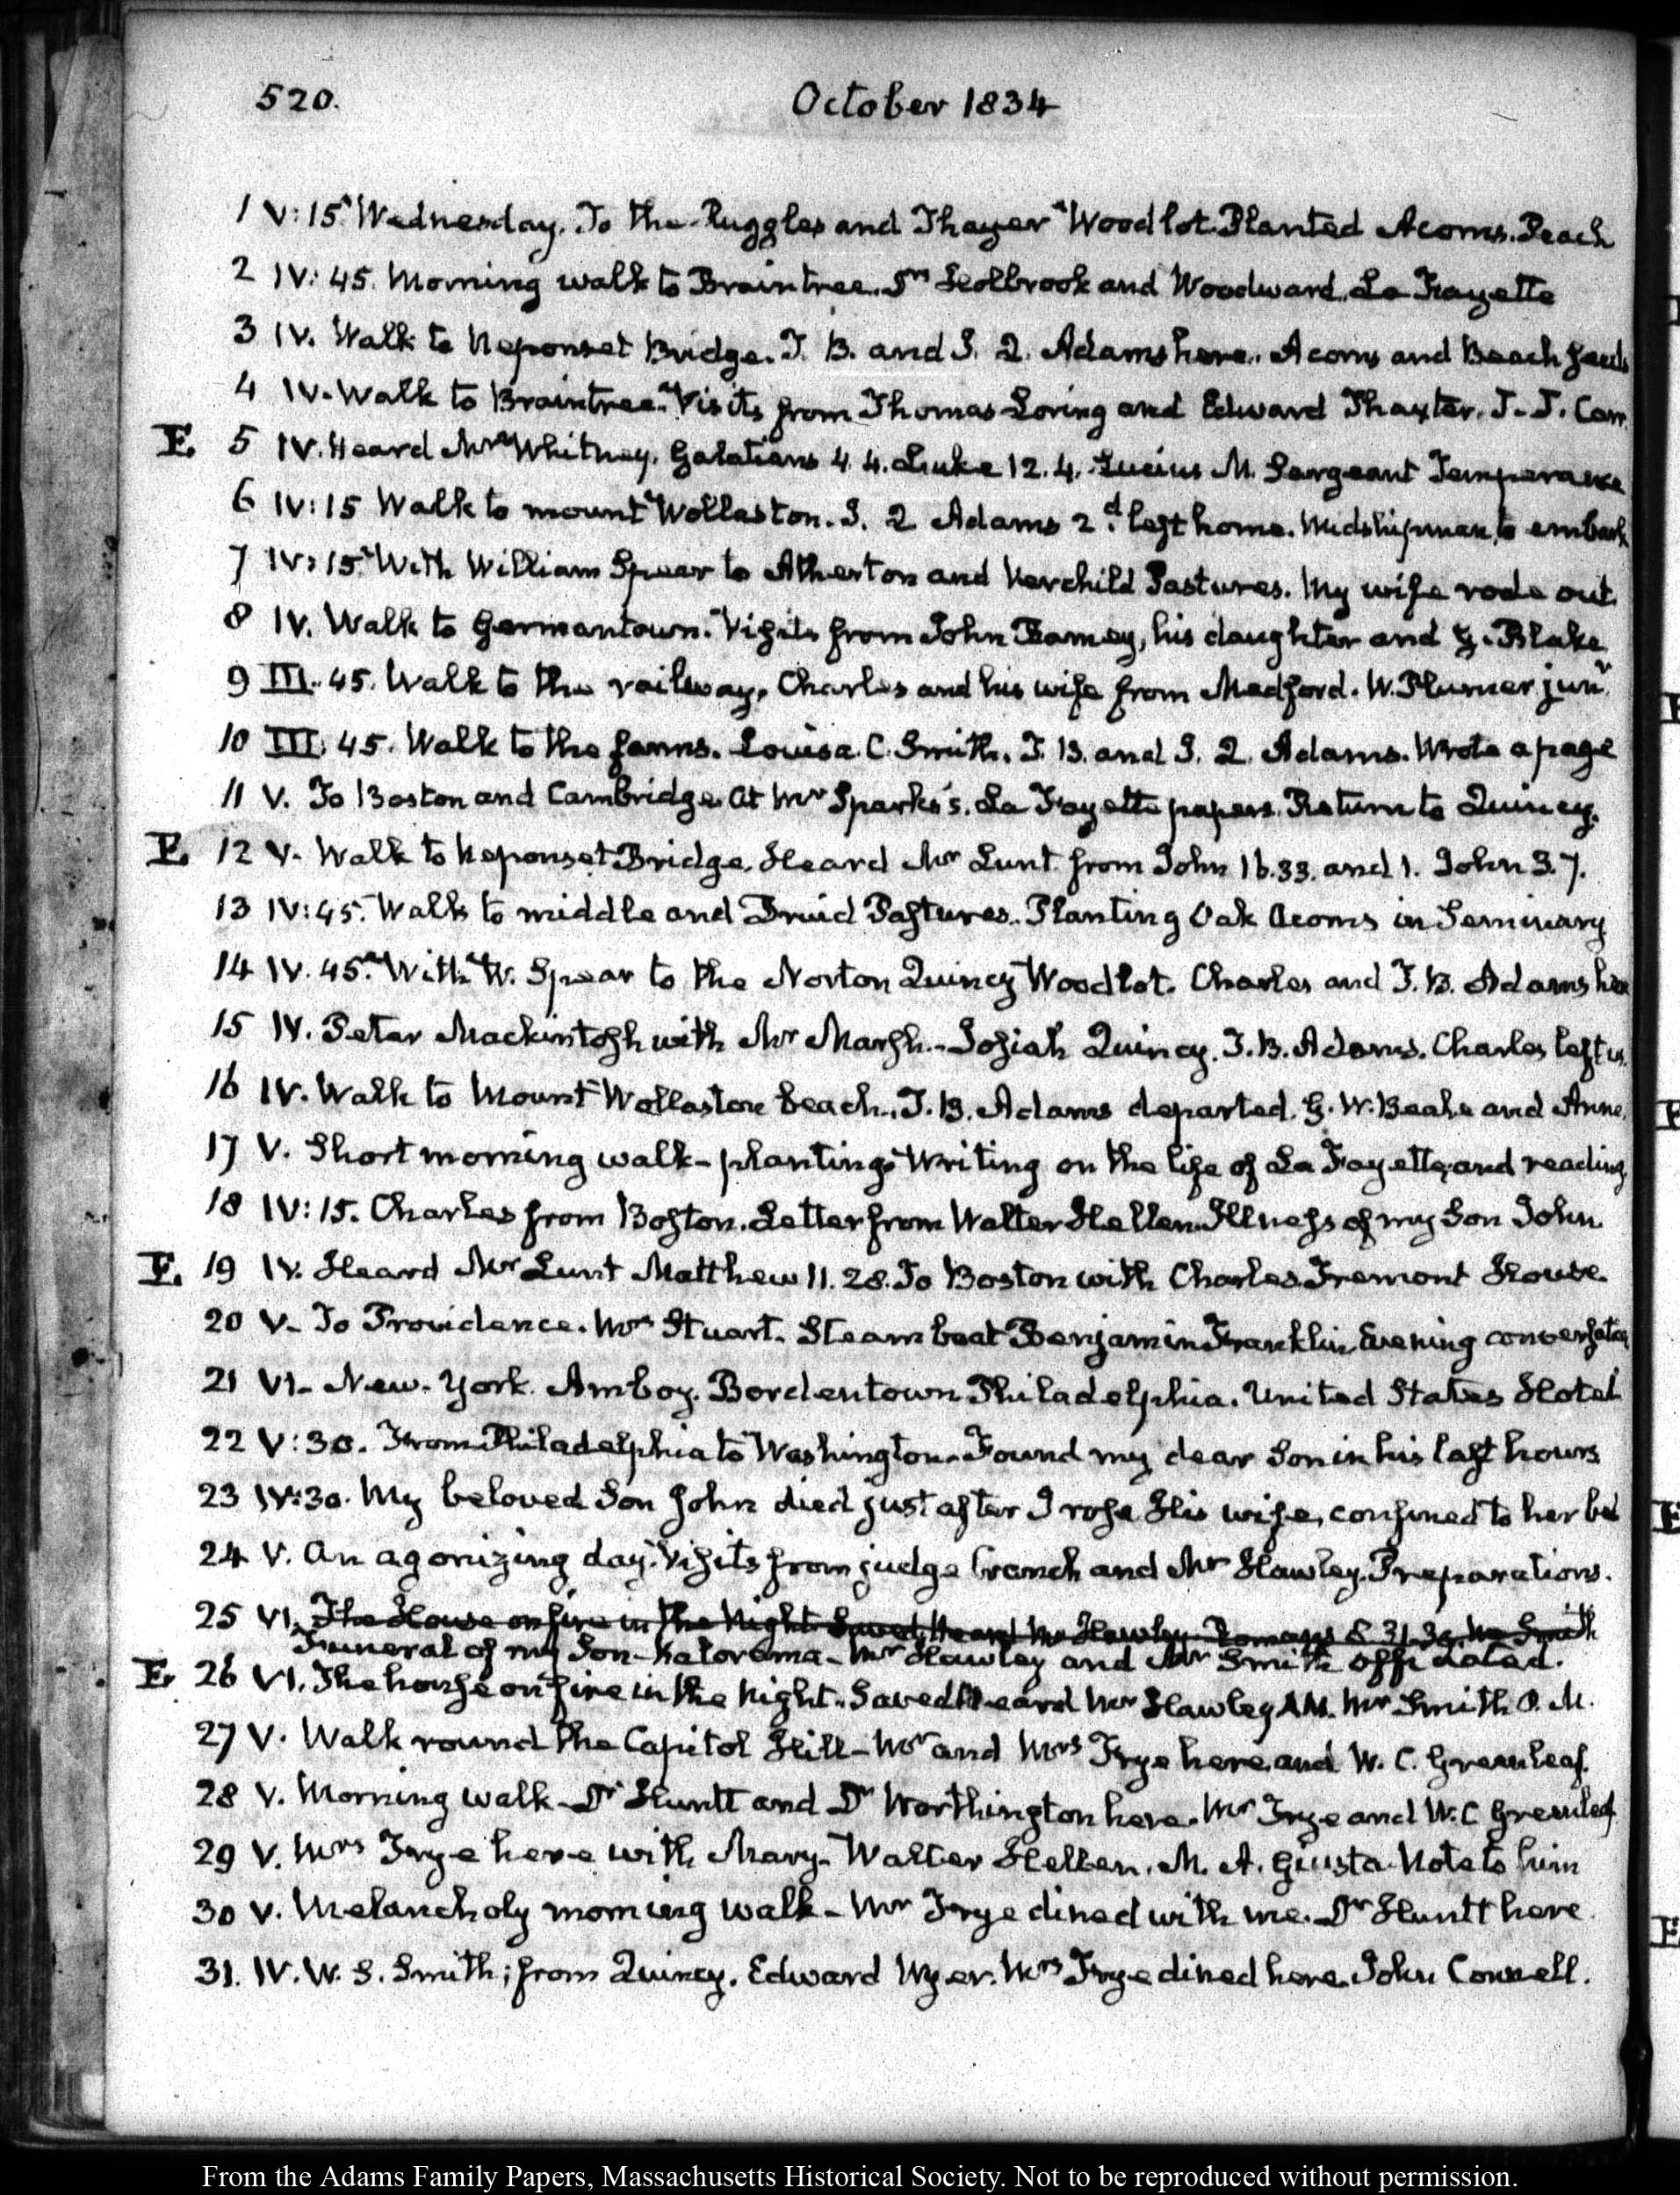 520. October 1834
1 V:15. Wednesday. To the Ruggles and Thayer Woodlot. Planted Acorns. Peach
2 IV:45. Morning walk to Braintree. Drs Holbrook and Woodward. La Fayette
3 IV. Walk to Neponset Bridge. T. B. and I. Q. Adams here. Acorns and Beach seeds
4 IV. Walk to Braintree. Visits from Thomas Loring and Edward Thaxter. J. J.
E. 5 IV. Heard Mr Whitney. Galatians 4. 4. Luke 12. 4. Lucius M. Sargeant Temperance
6 IV:15 Walk to mount Wollaston. I. Q Adams 2d. left home. Midshipman, to embark
7 IV:15. With William Spear to Atherton and Verchild Pastures. My wife rode out.
8 IV. Walk to Germantown. Visits from John Ramey, his daughter and G. Blake
9 III. 45. Walk to the railway. Charles and his wife from Medford. W. Plumer junr
10 III: 45. Walk to the farms. Louisa C. Smith. T. B. and I. Q. Adams. Wrote a page
11 V. To Boston and Cambridge. At Mr Sparks's. La Fayette papers. Return to Quincy.
E. 12 V. Walk to Neponset Bridge. Heard Mr Lunt from John 16.33. and 1. John 3.7.
13 IV:45. Walk to middle and Druid Pastures. Planting Oak Acorns in Seminary
14 IV. 45. With W. Spear to the Norton Quincy Woodlot. Charles and T. B. Adams here
15 IV. Peter Mackintosh with Mr Marsh. Josiah Quincy. T. B. Adams. Charles left us.
16 IV. Walk to Mount Wollaston beach. T. B. Adams departed. G. W. Beale and Anne.
17 V. Short morning walk - planting. Writing on the life of La Fayette, and reading
18 IV:15. Charles from Boston. Letter from Walter Hellen. Illness of my Son John
E. 19 IV. Heard Mr Lunt Matthew 11. 28. To Boston with Charles. Tremont House.
20 V. To Providence. Mrs Stuart. Steam boat Benjamin Franklin. Evening conversation
21 VI. New-York. Amboy. Bordentown Philadelphia. United States Hotel
22 V:30. From Philadelphia to Washington. Found my dear Son in his last hours
23 IV:30. My beloved Son John died just after I rose. His wife, confined to her bed
24 V. An agonizing day. Visits from judge Cranch and Mr Hawley. Preparations.
25 VI. The House on fire in the Night. Saved. Heard Mr Hawley Romans 8. 31. Mr Smith
Funeral of my Son - Kalorama - Mr Hawley and Mr Smith officiated.
E. 26 VI. The house on fire in the Night. Saved. Heard Mr Hawley AM. Mr Smith P. M.
27 V. Walk round the Capitol Hill - Mr and Mrs Frye here, and W. C. Greenleaf.
28 V. Morning walk - Dr Huntt and Dr Worthington here. Mr Frye and W. C Greenleaf
29 V. Mrs Frye here with Mary. Walter Hellen. M. A. Giusta. Note to him
30 V. Melancholy morning walk - Mr Frye dined with me. Dr Huntt here.
31. IV. W. S. Smith; from Quincy. Edward Wyer. Mrs Frye dined here. John Connell.
From the Adams Family Papers, Massachusetts Historical Society. Not to be reproduced without permission.